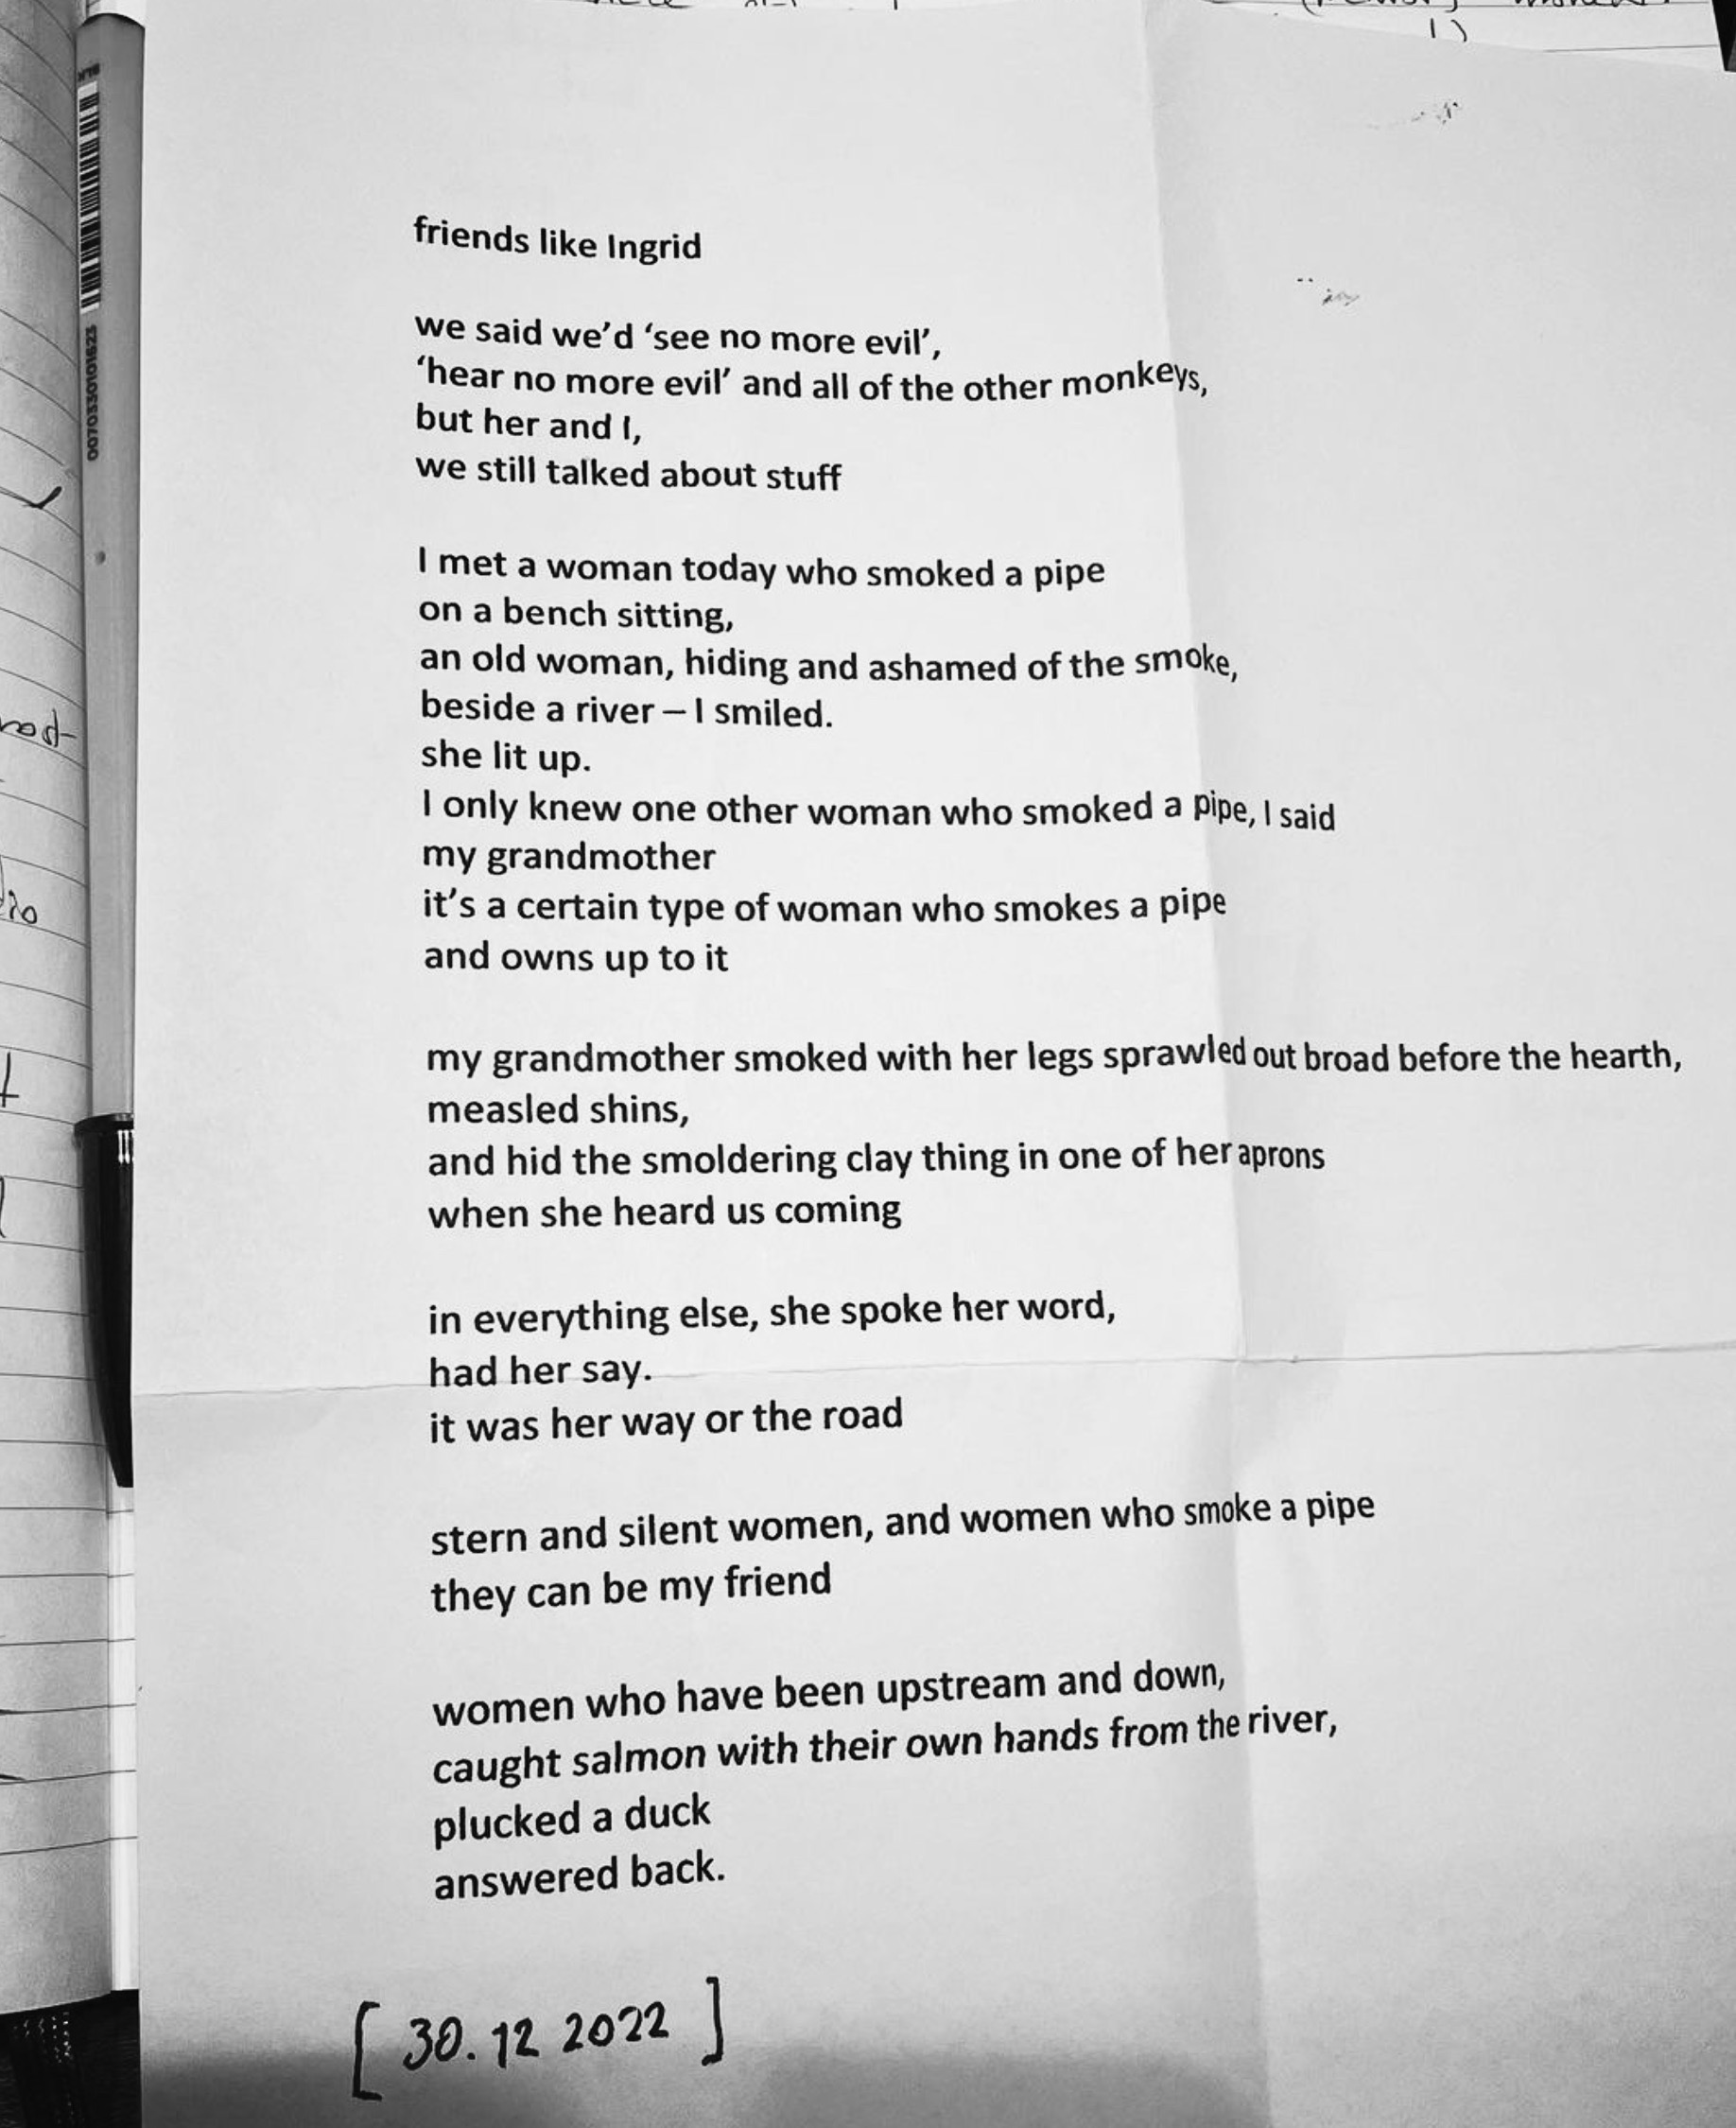 friends like Ingrid
we said we'd 'see no more evil',
'hear no more evil' and all of the other monkeys,
but her and I,
we still talked about stuff
I met a woman today who smoked a pipe
on a bench sitting,
an old woman, hiding and ashamed of the smoke,
beside a river – I smiled.
she lit up.
I only knew one other woman who smoked a pipe, I said
my grandmother
it's a certain type of woman who smokes a pipe
and owns up to it
my grandmother smoked with her legs sprawled out broad before the hearth,
measled shins,
and hid the smoldering clay thing in one of her aprons
when she heard us coming
in everything else, she spoke her word,
had her say.
it was her way or the road
stern and silent women, and women who smoke a pipe
they can be my friend
women who have been upstream and down,
caught salmon with their own hands from the river,
plucked a duck
answered back.
[ 30. 12 2022 ]
070330101623